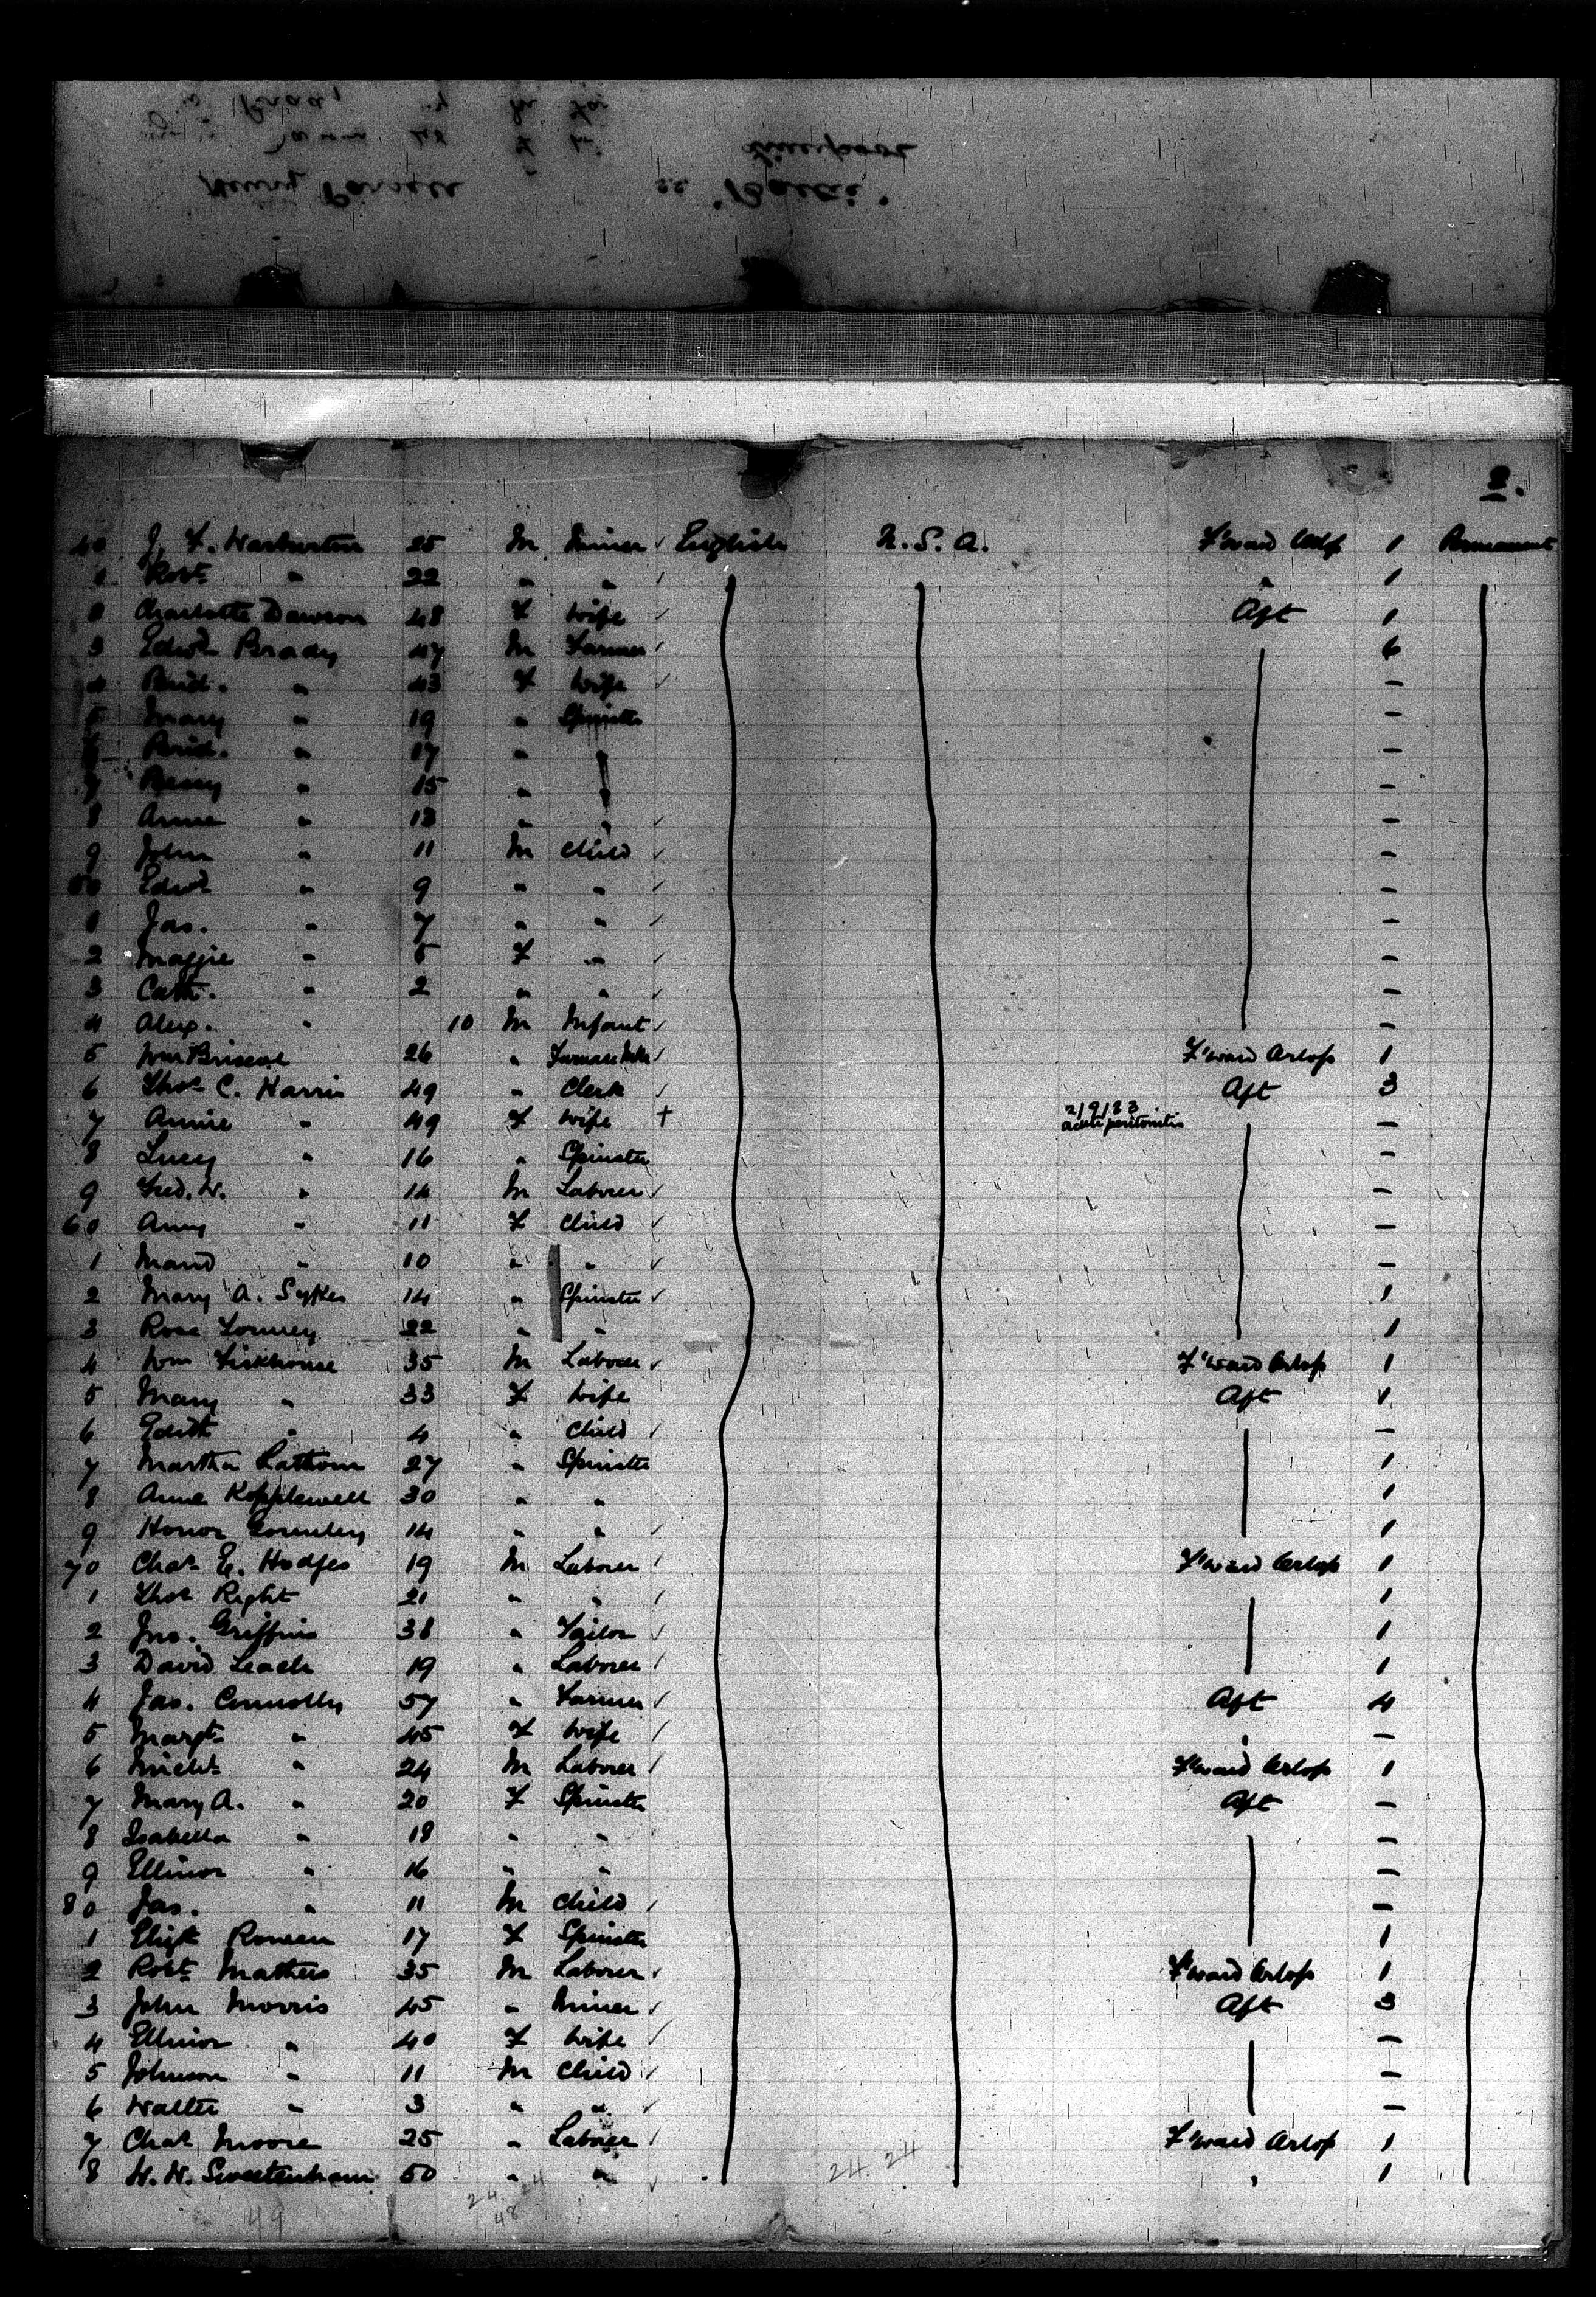 Liverpool
Henry Parnell S.S. "Baltic"
2.
40 J. F. Warburton 25 M Miner English U.S.A. F'ward Orlop 1 Permanent
1 Robt " 22 " " " 1
2 Charlotte Dawson 48 F Wife Aft 1
3 Edwd Brady 47 M Farmer 6
4 Brid. " 43 F Wife –
5 Mary " 19 " Spinster –
6 Brid. " 17 " " –
7 " 15 " " –
8 Annie " 13 " " –
9 John " 11 M Child –
50 Edwd " 9 " " –
1 Jas. " 7 " " –
2 Maggie " 5 F " –
3 Cath. " 2 " " –
4 Alex. " 10 M Infant –
5 Wm Briscoe 26 " F'ward Orlop 1
6 Thos C. Harris 49 " Clerk Aft 3
7 Annie " 49 F Wife + 2/9/83 acute peritonitis –
8 Lucy " 16 " Spinster –
9 Fred. W. " 14 M Laborer –
60 Amy " 11 F Child –
1 Maud " 10 " " –
2 Mary A. Sykes 14 " Spinster 1
3 Rose 22 " " 1
4 Wm Fiskhouse 35 M Laborer F'ward Orlop 1
5 Mary " 33 F Wife Aft 1
6 Edith " 4 " Child –
7 Martha Lathom 27 " Spinster 1
8 Anne Kopplewell 30 " " 1
9 Honor Gormley 14 " " 1
70 Chas E. Hodges 19 M Laborer F'ward Orlop 1
1 Thos Right 21 " " 1
2 Jno. Griffins 38 " Tailor 1
3 David Leach 19 " Laborer 1
4 Jas. Connolly 57 " Farmer Aft 4
5 Margt " 45 F Wife " –
6 Michl " 24 M Laborer F'ward Orlop 1
7 Mary A. " 20 F Spinster Aft –
8 Isabella " 18 " " –
9 Ellinor " 16 " " –
80 Jas. " 11 M Child –
1 Elizth 17 F Spinster 1
2 Robt Mathers 35 M Laborer F'ward Orlop 1
3 John Morris 45 " Miner Aft 3
4 Ellinor " 40 F Wife –
5 Johnson " 11 M Child –
6 Walter " 3 " " –
7 Chas Moore 25 " Laborer F'ward Orlop 1
8 W. H. Swetenham 50 " " " 1
24 24
24 24
49 48